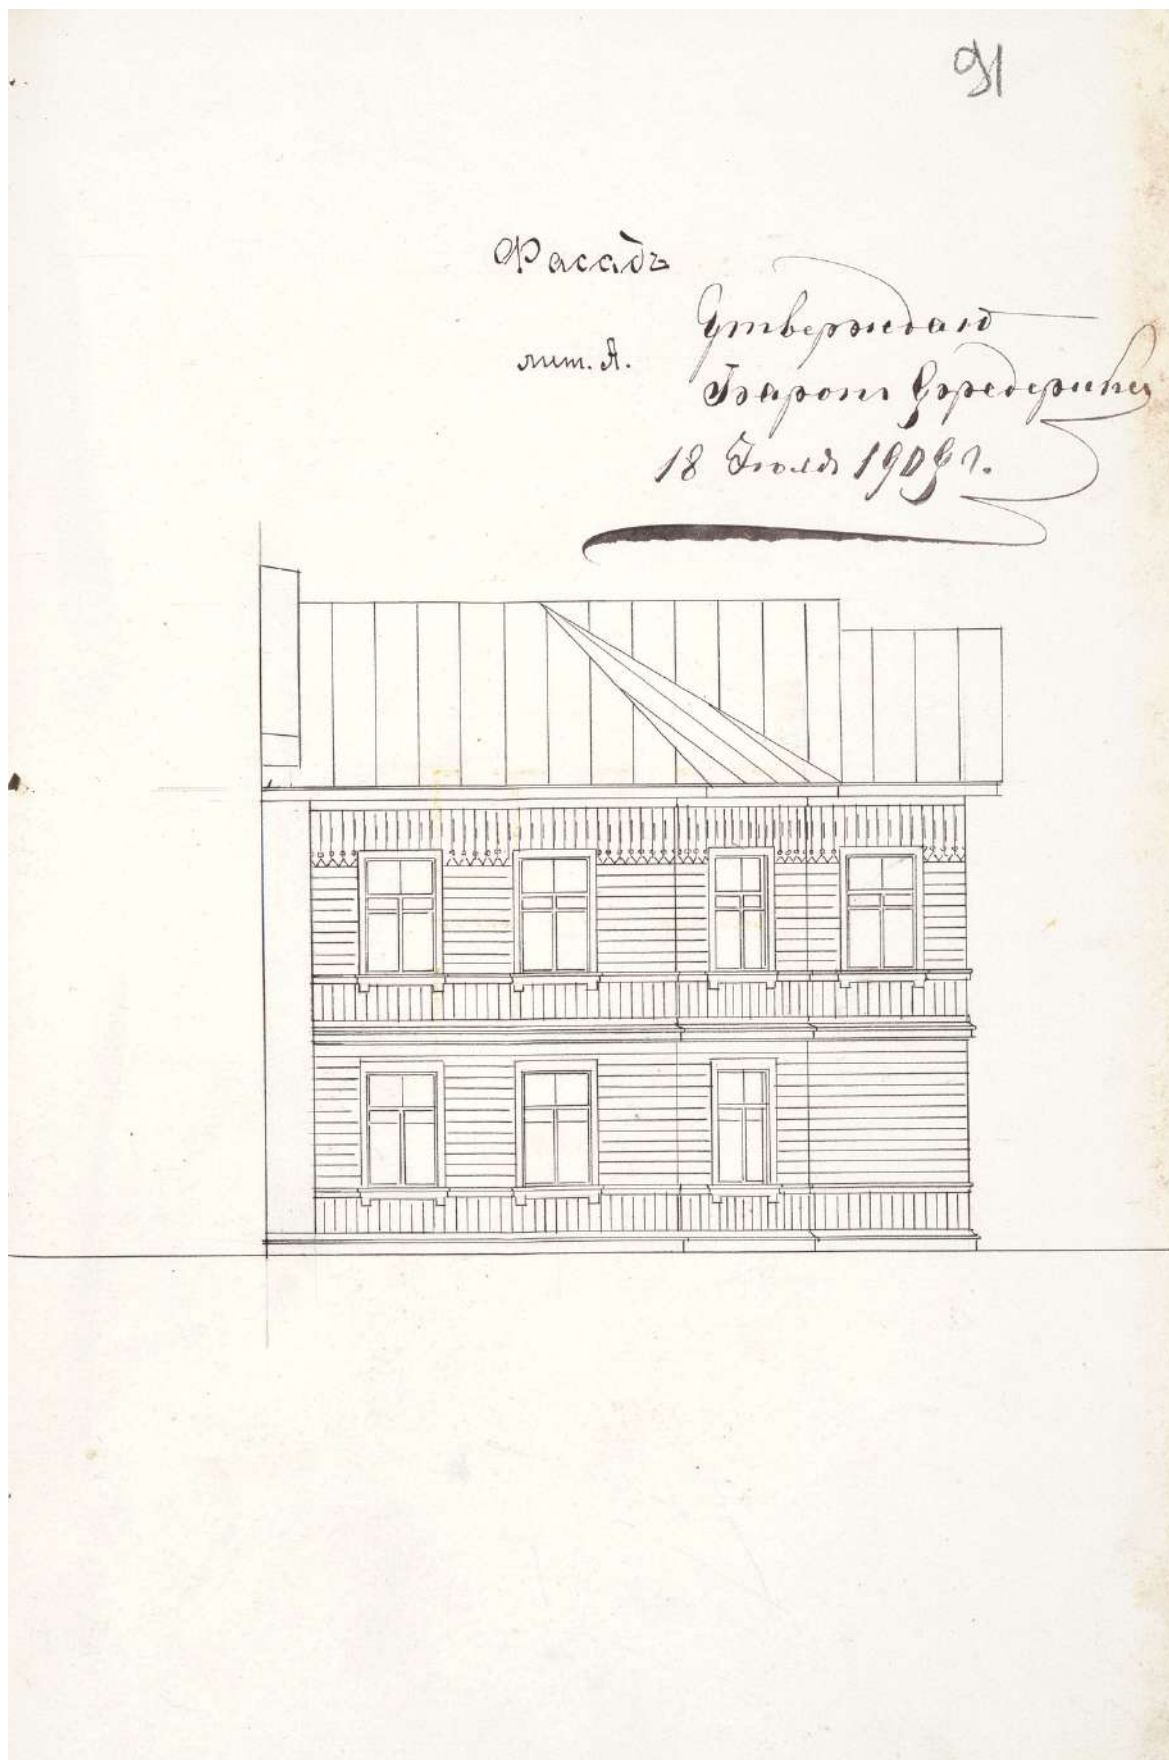 91
Фасадъ
лит. А.
Утверждаю
Баронъ Фредерикъ
18 Іюля 1909 г.